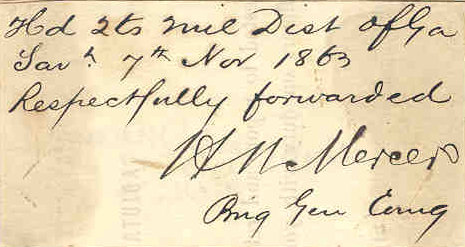 Hd Qts Mil Dist of Ga
Savh 7th Nov 1863
Respectfully forwarded
H W Mercer
Brig Gen Comg